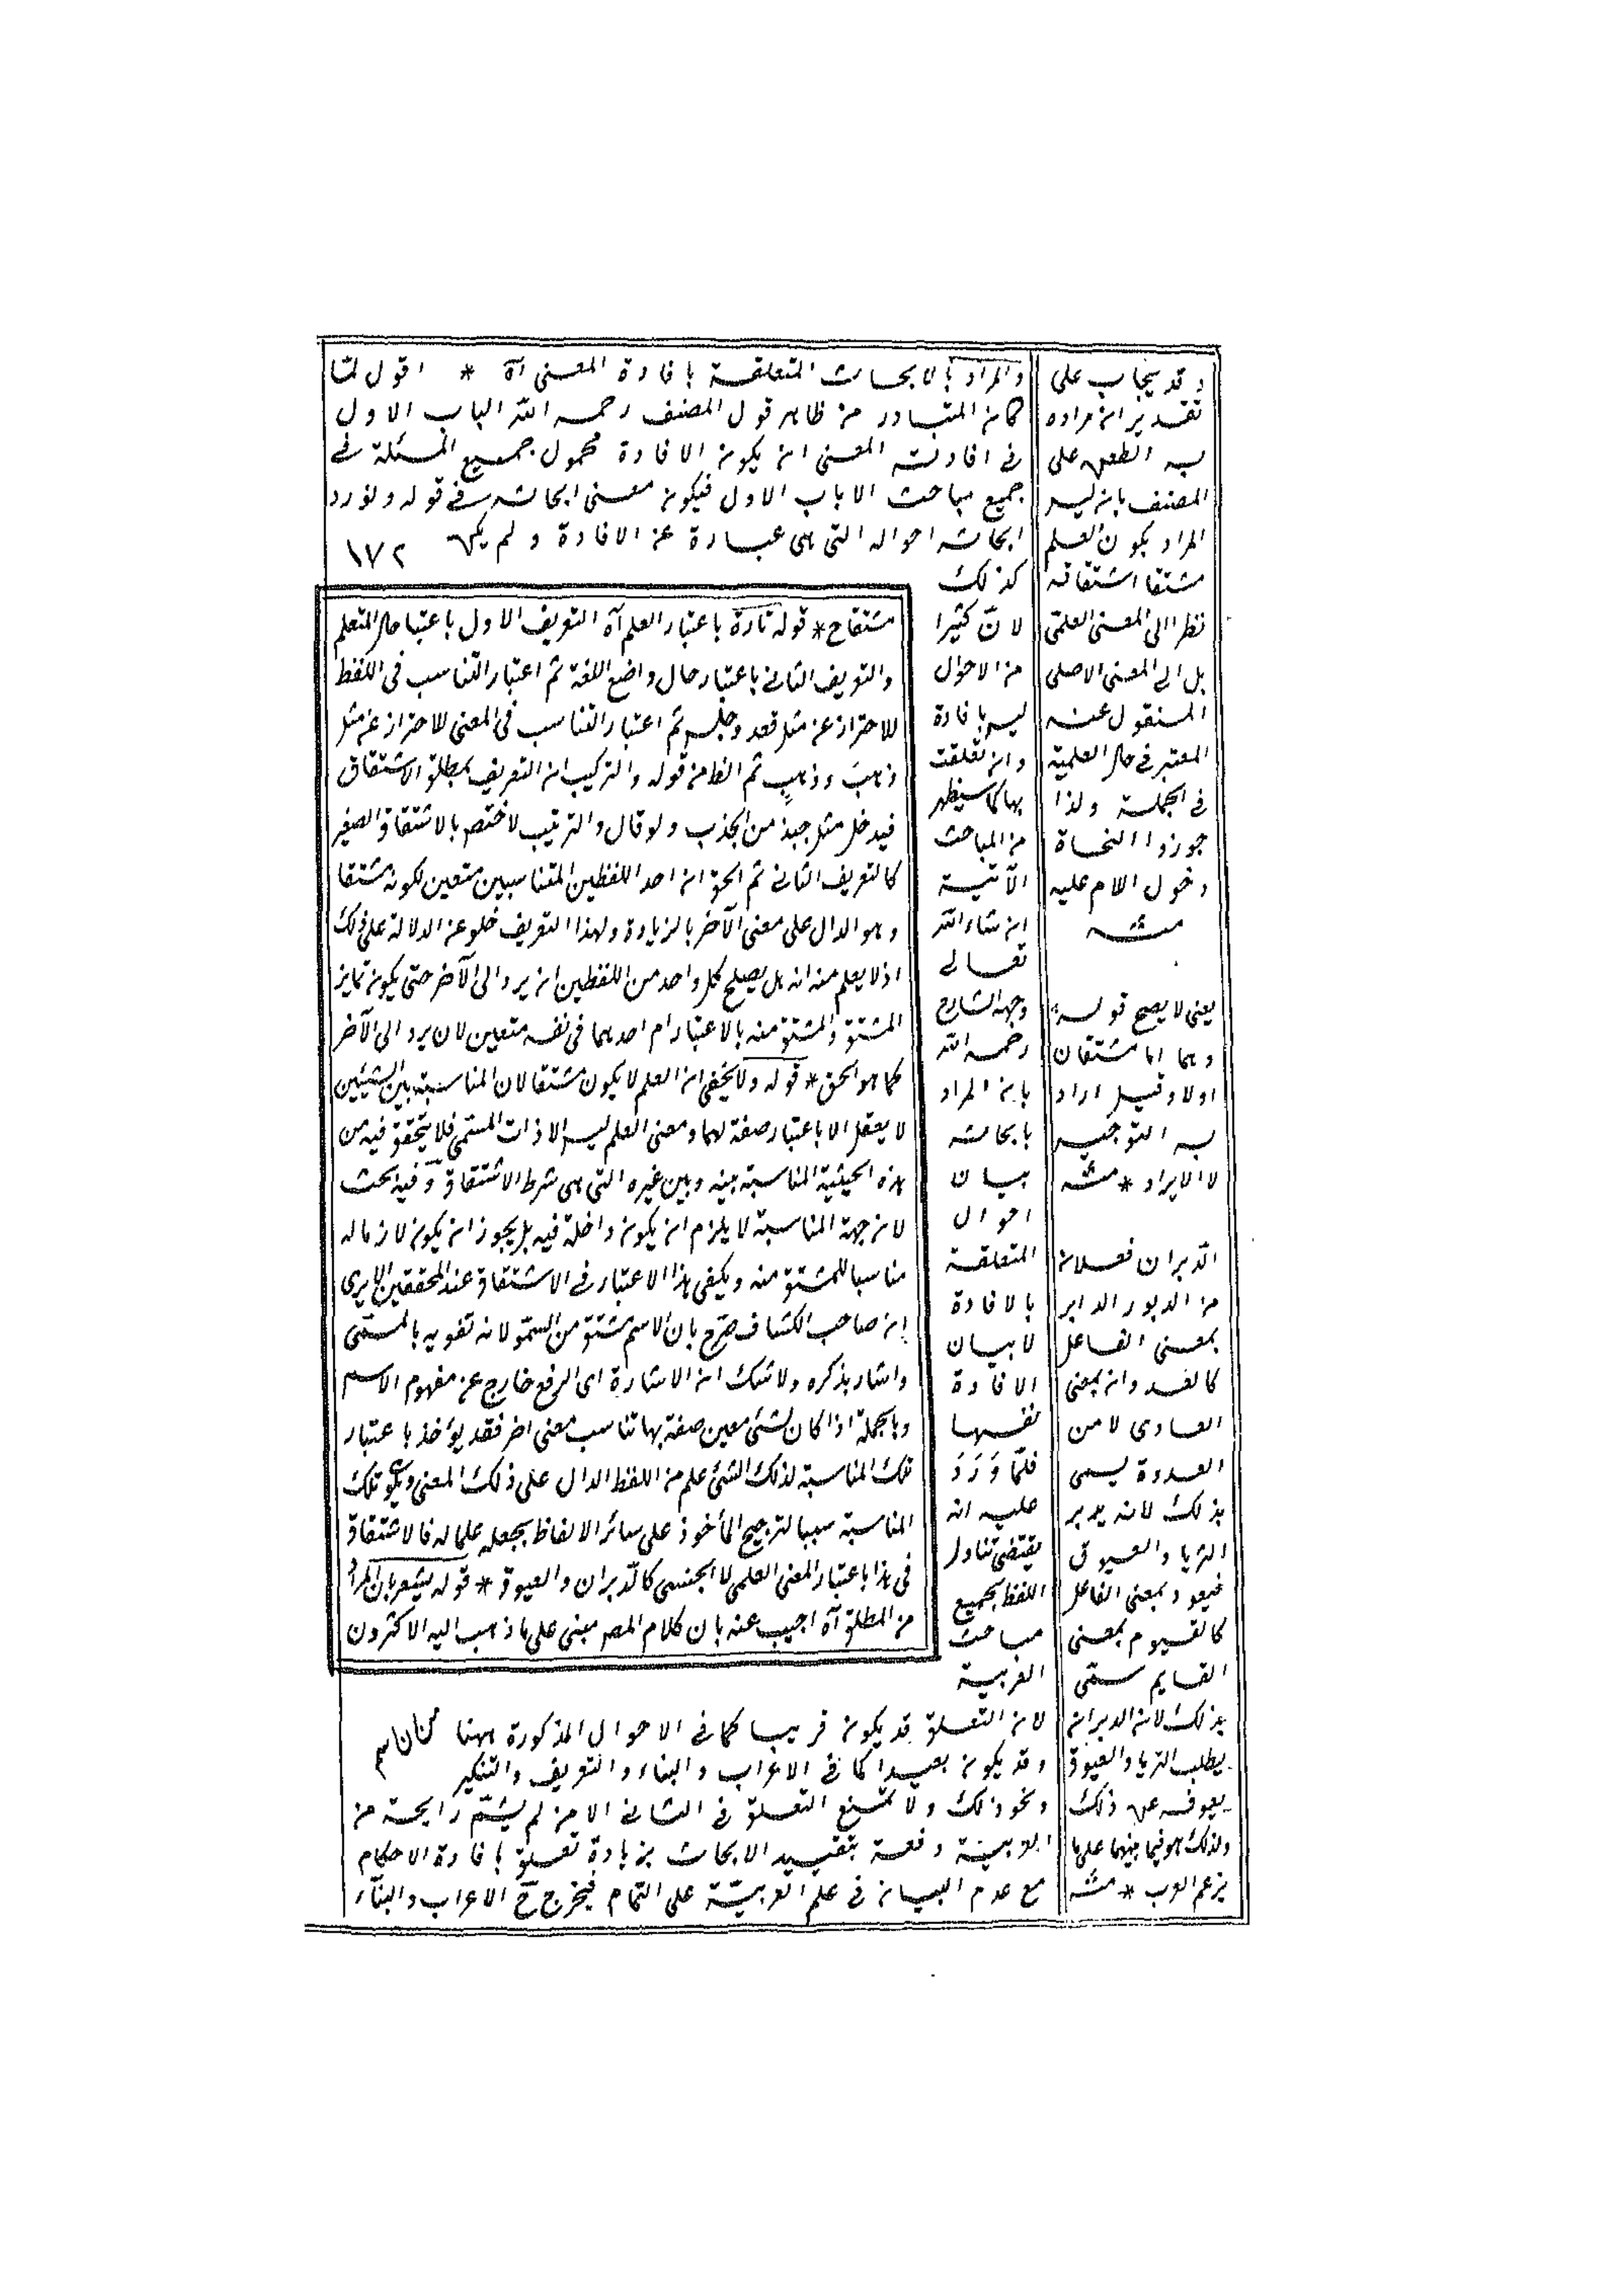 والمراد بالابحاث المتعلقة بافادة المعنى آه * اقول لما
كان المتبادر من ظاهر قول المصنف رحمه الله الباب الاول
في افادته المعنى ان يكون الافادة محمول جميع المسئلة في
جميع مباحث الاباب الاول فيكون معنى ابحاثه في قوله ولنورد
ابحاثه احواله التي هي عبارة عن الافادة ولم يكن
١٧٢
كذلك
لان كثيرا
من الاحوال
ليس بافادة
وان تعلقت
بها كما سيظهر
من المباحث
الآتية
ان شاء الله
تعالى
وجهه الشارح
رحمه الله
بان المراد
بابحاثه
بيان
احوال
المتعلقة
بالافادة
لا بيان
الافادة
نفسها
فلمّا وَرَدَ
عليه انه
يقتضى تناول
اللفظ بجميع
مباحث
العربية
لان التعلق قد يكون قريبا كما في الاحوال المذكورة ههنا
وقد يكون بعيدا كما في الاعراب والبناء والتعريف والتنكير
ونحو ذلك ولا يمتنع التعلق في الثاني الا من لم يشمّ رايحة من
العربية دفعه بتقييد الابحاث بزيادة تعلق بافادة الاحكام
مع عدم البيان في علم العربيّة على التمام فيخرج ح الاعراب والبناء
مشتقاح * قوله تارة باعتبار العلم آه التعريف الاول باعتبار حال المتعلم
والتعريف الثاني باعتبار حال واضع اللغة ثم اعتبار التناسب في اللفظ
للاحتراز عن مثل قعد وجلس ثم اعتبار التناسب في المعنى للاحتراز عن مثل
ذهبَ وذهبٍ ثم الظ من قوله والتركيب ان التعريف بمطلق الاشتقاق
فيدخل مثل جبذ من الجذب ولو قال والترتيب لاختص بالاشتقاق الصغير
كالتعريف الثاني ثم الحق ان احد اللفظين المتناسبين متعين لكونه مشتقا
وهو الدال على معنى الآخر بالزيادة ولهذا التعريف خلو عن الدلالة على ذلك
اذ لا يعلم منه انه هل يصلح كل واحد من اللفظين ان يرد الى الآخر حتى يكون تمايز
المشتق والمشتق منه بالاعتبار ام احدهما في نفسه متعين لان يرد الى الآخر
كما هو الحق * قوله ولا يخفى ان العلم لا يكون مشتقا لان المناسبة بين الشيئين
لا يعقل الا باعتبار صفة لهما ومعنى العلم ليس الا ذات المسمى فلا يتحقق فيه من
هذه الحيثية المناسبة بينه وبين غيره التي هي شرط الاشتقاق وفيه بحث
لان جهة المناسبة لا يلزم ان يكون داخلة فيه بل يجوز ان يكون لازما له
مناسبا للمشتق منه ويكفى هذا الاعتبار في الاشتقاق عند المحققين الا يرى
ان صاحب الكشاف صرّح بان الاسم مشتق من السموّ لانه تنويه بالمسمّى
واشار بذكره ولا شك ان الاشارة اى الرفع خارج عن مفهوم الاسم
وبالجملة اذا كان لشئ معين صفة بها تناسب معنى اخر فقد يؤخذ باعتبار
تلك المناسبة لذلك الشئ علم من اللفظ الدال على ذلك المعنى ويكون تلك
المناسبة سببا لترجيح المأخوذ على سائر الالفاظ بجعله علما له فالاشتقاق
في هذا باعتبار المعنى العلمى لا الجنسى كالدّبران والعيوق * قوله يشعر بان المراد
من المطلق آه اجيب عنه بان كلام المص مبنى على ما ذهب اليه الاكثرون
وقد يجاب على
تقدير ان مراده
به الطعن على
المصنف بان ليس
المراد بكون العلم
مشتقا اشتقاقه
نظرا الى المعنى العلمى
بل الى المعنى الاصلى
المنقول عنه
المعتبر في حال العلمية
في الجملة ولذا
جوزوا النحاة
دخول اللام عليه
منه
يعنى لا يصح قوله
وهما اما مشتقان
اولا وقيل اراد
به التوجيه
لا الايراد * منه
الدّبران فعلان
من الدبور الدابر
بمعنى الفاعل
العادى لا من
العدوة يسمى
بذلك لانه يدبر
الثريا والعيوق
فيعول بمعنى الفاعل
كالقيوم بمعنى
القايم سمّى
بذلك لان الدبران
يطلب الثريا والعيوق
يعوقه عن ذلك
ولذلك هو فيما بينهما على ما
يزعم العرب * منه